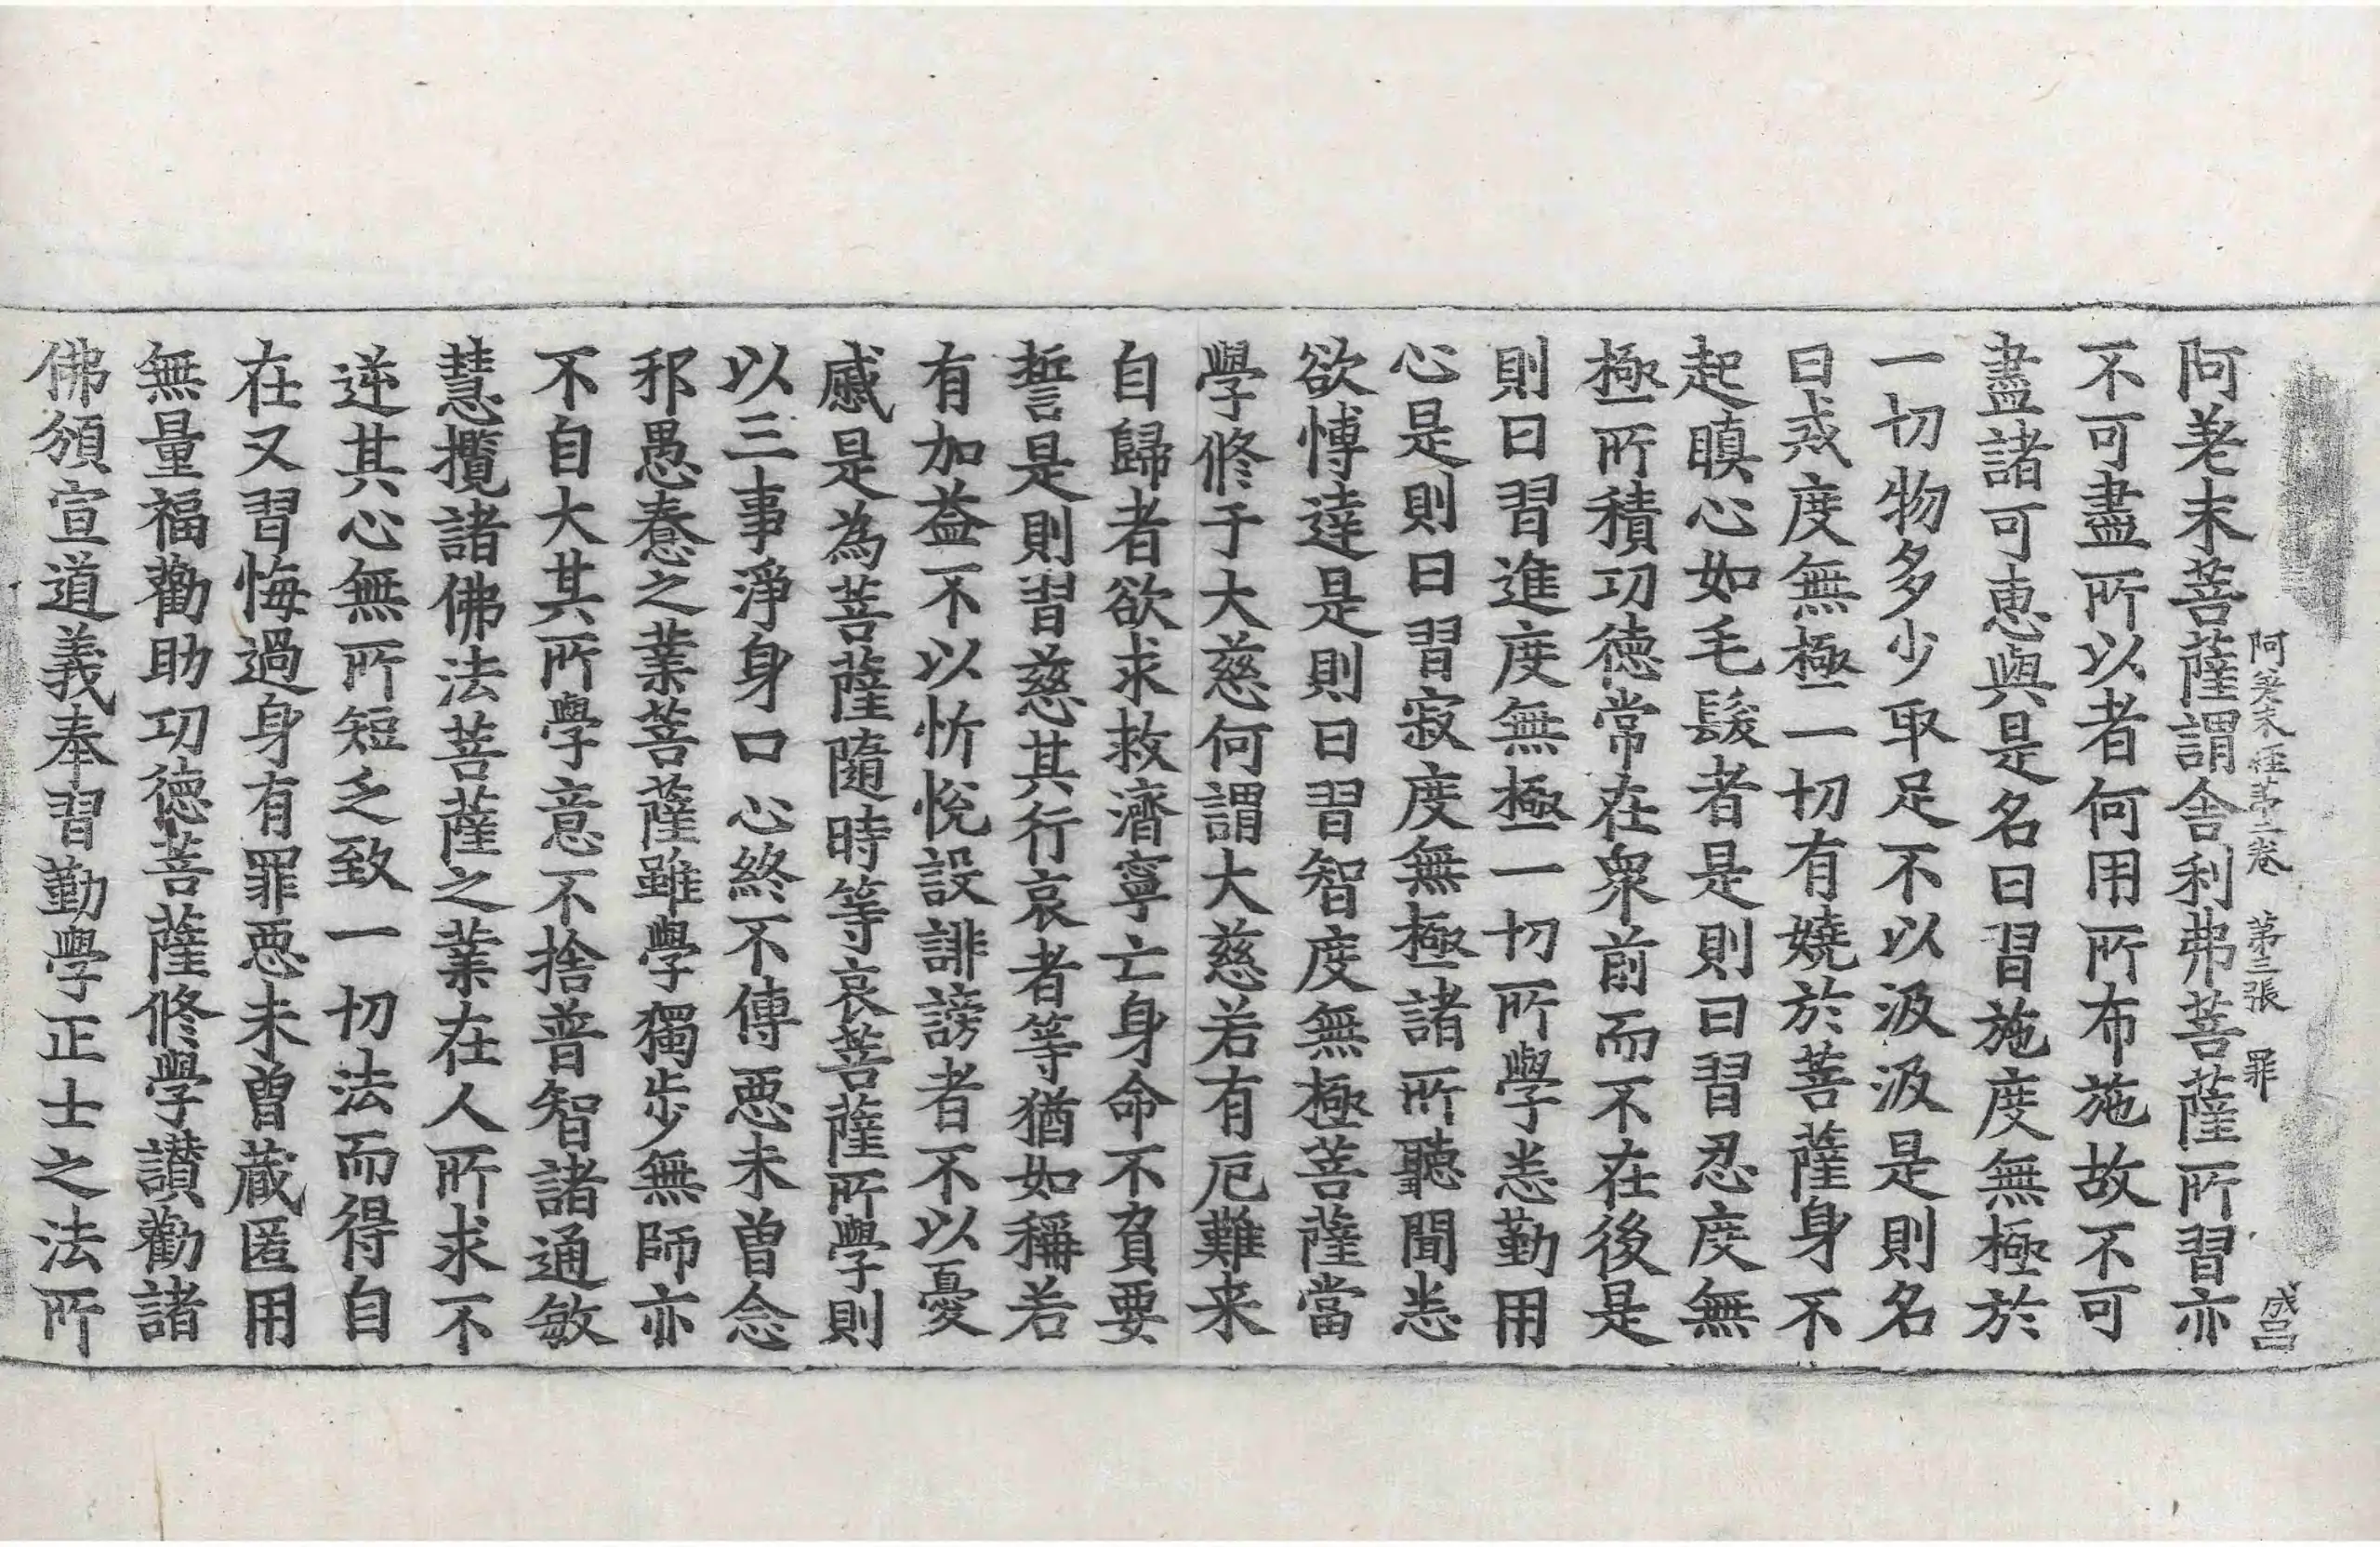 阿差末經第二卷 第三張 罪 成呂
阿差末菩薩謂舍利弗菩薩所習亦
不可盡所以者何用所布施故不可
盡諸可恵與是名曰習施度無極於
一切物多少取足不以汲汲是則名
曰戒度無極一切有嬈於菩薩身不
起瞋心如毛髮者是則曰習忍度無
極所積功德常在衆前而不在後是
則曰習進度無極一切所學悉勤用
心是則曰習寂度無極諸所聽聞悉
欲愽達是則曰習智度無極菩薩當
學修于大慈何謂大慈若有厄難来
自歸者欲求救濟寧亡身命不負要
誓是則習慈其行哀者等猶如稱若
有加益不以忻悅設誹謗者不以憂
慼是為菩薩隨時等哀菩薩所學則
以三事淨身口心終不傳惡未曾念
邪愚惷之業菩薩雖學獨步無師亦
不自大其所學意不捨普智諸通敏
慧攬諸佛法菩薩之業在人所求不
逆其心無所短乏致一切法而得自
在又習悔過身有罪惡未曾蔵匿用
無量福勸助功德菩薩修學讃勸諸
佛頒宣道義奉習勤學正士之法所